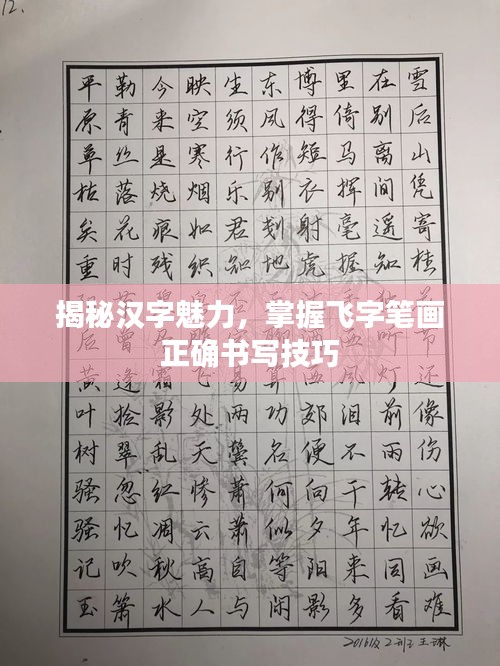 12.
揭秘汉字魅力，掌握飞字笔画
正确书写技巧
平原草枯矣重后黄叶树骚骚记玉
勒青丝落花时曾逢拾翠忽忆吹箫
今来是烧痕残霜影乱红凋秋水
映空寒烟如织飞处天惨云高人
生须行乐君知易两鬓萧萧自与
东风作别刬地功名何似等闲
博得短衣射虎西郊便向夕阳影
里倚马挥毫握风泪不干年来多
在别离间遥知灯前雨转忆同看
雪后山凭寄桂还像伤心欲画难